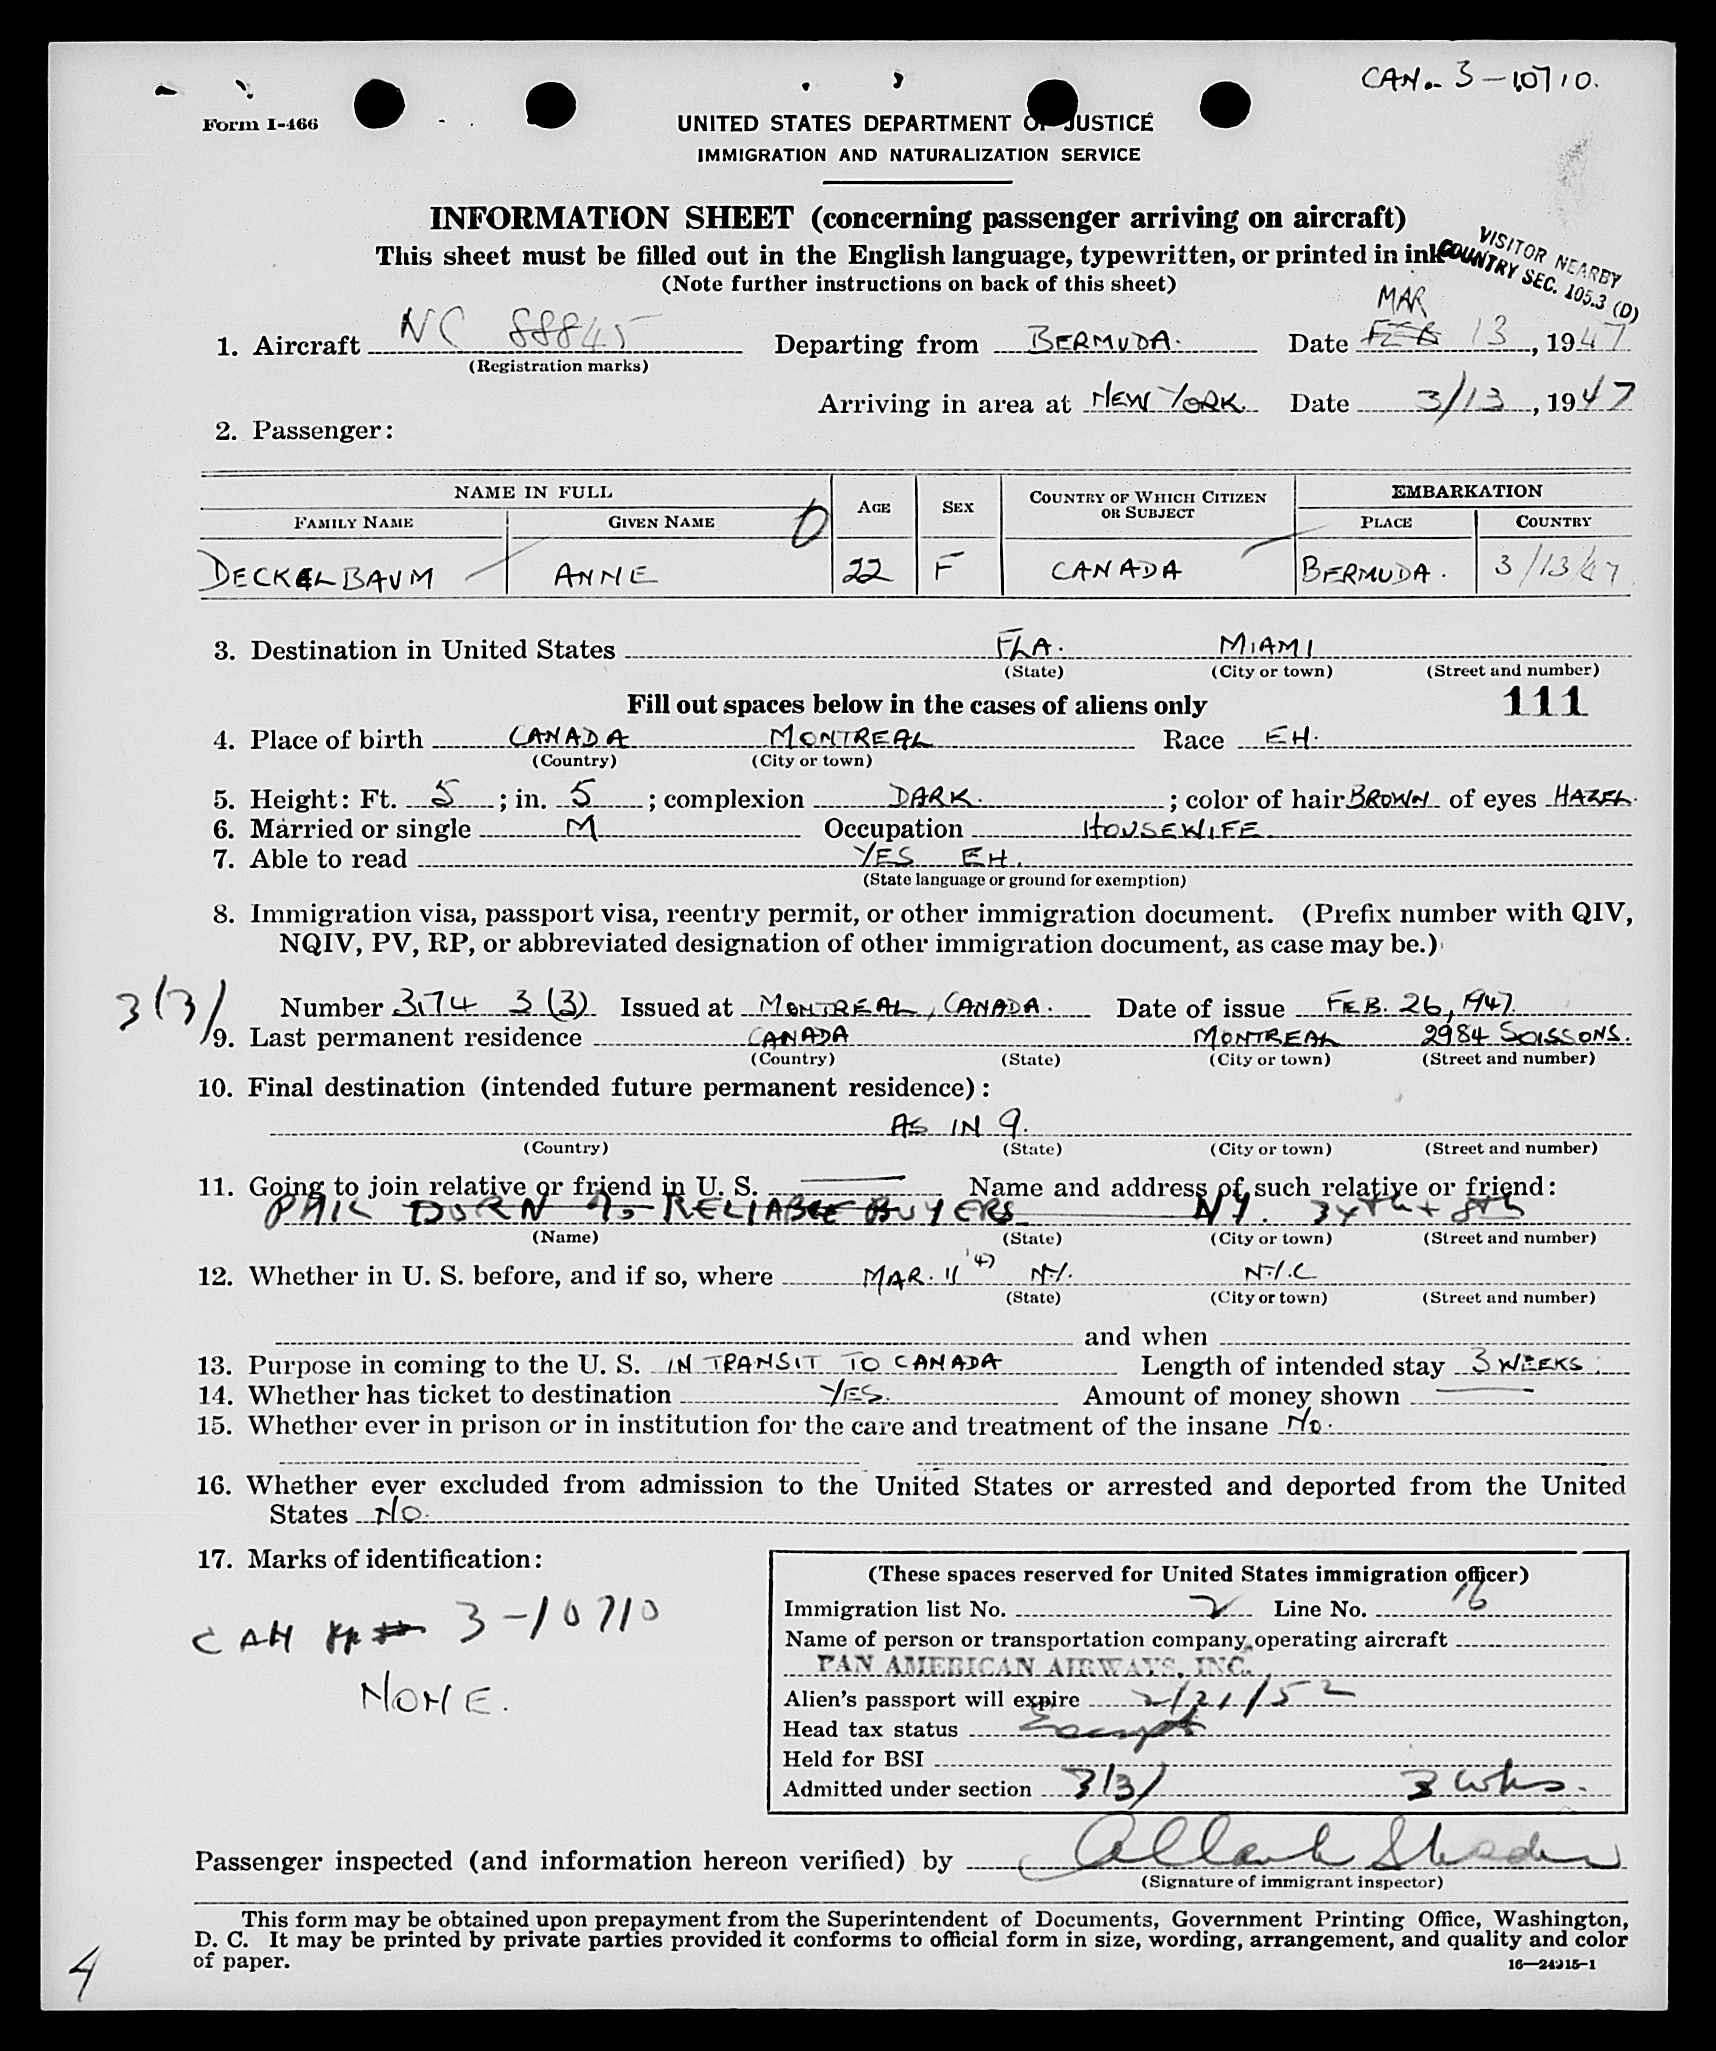 CAN. 3-10710.
Form I-466
UNITED STATES DEPARTMENT OF JUSTICE
IMMIGRATION AND NATURALIZATION SERVICE
INFORMATION SHEET (concerning passenger arriving on aircraft)
This sheet must be filled out in the English language, typewritten, or printed in ink
VISITOR NEARBY
COUNTRY SEC. 105.3 (D)
(Note further instructions on back of this sheet)
MAR
1. Aircraft NC 88845 Departing from BERMUDA. Date FEB 13, 1947
(Registration marks)
Arriving in area at NEW YORK. Date 3/13, 1947
2. Passenger:
NAME IN FULL AGE SEX COUNTRY OF WHICH CITIZEN OR SUBJECT EMBARKATION
FAMILY NAME GIVEN NAME PLACE COUNTRY
DECKELBAUM ANNE 22 F CANADA BERMUDA. 3/13/47
3. Destination in United States FLA. MIAMI
(State) (City or town) (Street and number)
Fill out spaces below in the cases of aliens only 111
4. Place of birth CANADA MONTREAL Race EH.
(Country) (City or town)
5. Height: Ft. 5; in. 5; complexion DARK.; color of hair BROWN of eyes HAZEL.
6. Married or single M Occupation HOUSEWIFE
7. Able to read YES EH.
(State language or ground for exemption)
8. Immigration visa, passport visa, reentry permit, or other immigration document. (Prefix number with QIV,
NQIV, PV, RP, or abbreviated designation of other immigration document, as case may be.)
3(3) Number 3174 3(3) Issued at MONTREAL, CANADA. Date of issue FEB. 26, 1947.
9. Last permanent residence CANADA MONTREAL 2984 SOISSONS.
(Country) (State) (City or town) (Street and number)
10. Final destination (intended future permanent residence):
AS IN 9.
(Country) (State) (City or town) (Street and number)
11. Going to join relative or friend in U. S. — Name and address of such relative or friend:
PHIL DORN % RELIABLE BUYERS NY. 34th + 8th
(Name) (State) (City or town) (Street and number)
12. Whether in U. S. before, and if so, where MAR. 11 '47 N.Y. N.Y.C
(State) (City or town) (Street and number)
and when
13. Purpose in coming to the U. S. IN TRANSIT TO CANADA Length of intended stay 3 WEEKS.
14. Whether has ticket to destination YES. Amount of money shown —
15. Whether ever in prison or in institution for the care and treatment of the insane No.
16. Whether ever excluded from admission to the United States or arrested and deported from the United
States NO.
17. Marks of identification:
CAN 3-10710
NONE.
(These spaces reserved for United States immigration officer)
Immigration list No. 2 Line No. 16
Name of person or transportation company operating aircraft
PAN AMERICAN AIRWAYS, INC.
Alien's passport will expire 2/21/52
Head tax status Exempt
Held for BSI
Admitted under section 3(3) 3 wks.
Passenger inspected (and information hereon verified) by
(Signature of immigrant inspector)
This form may be obtained upon prepayment from the Superintendent of Documents, Government Printing Office, Washington,
D. C. It may be printed by private parties provided it conforms to official form in size, wording, arrangement, and quality and color
of paper.
16—24915-1
4